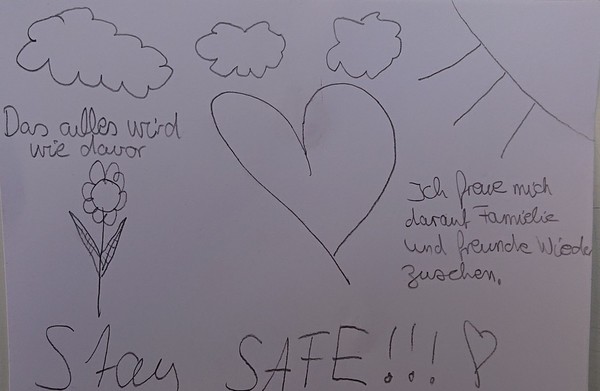 Das alles wird
wie davor
Ich freue mich
darauf Famielie
und freunde Wieder
zusehen.
Stay SAFE!!!